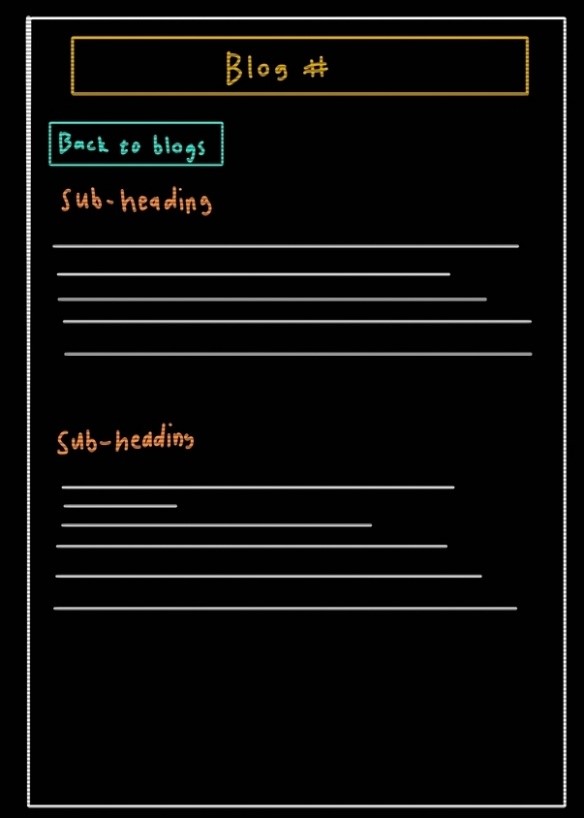 Blog #
Back to blogs
Sub-heading
Sub-heading